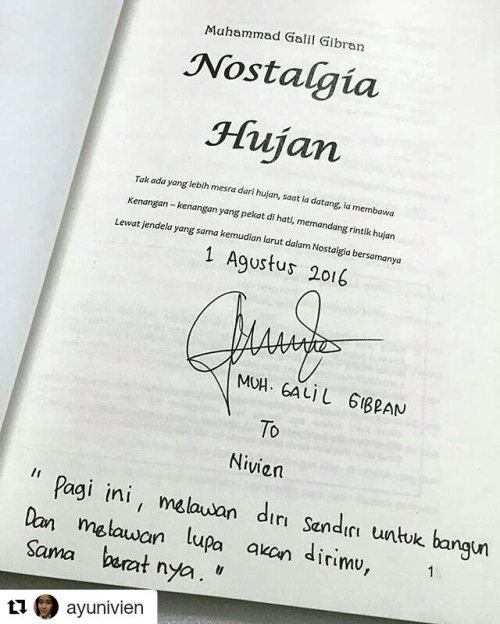 Muhammad Galil Gibran
Nostalgia
Hujan
Tak ada yang lebih mesra dari hujan, saat ia datang, ia membawa
Kenangan – kenangan yang pekat di hati, memandang rintik hujan
Lewat jendela yang sama kemudian larut dalam Nostalgia bersamanya
1 Agustus 2016
MUH. GALIL GIBRAN
TO
Nivien
" Pagi ini, melawan diri sendiri untuk bangun
Dan melawan lupa akan dirimu,
Sama beratnya. "
1
ayunivien